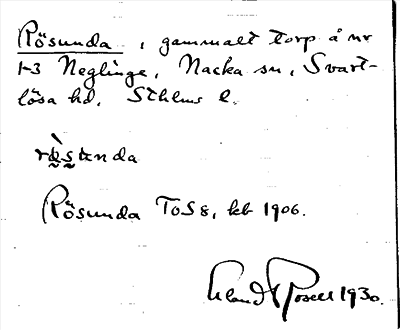 Rösunda, gammalt torp å nr
1-3 Neglinge, Nacka sn, Svart-
lösa hd, Sthlms l.
Rösunda ToS 8, kb 1906.
Erland Rosell 1930.